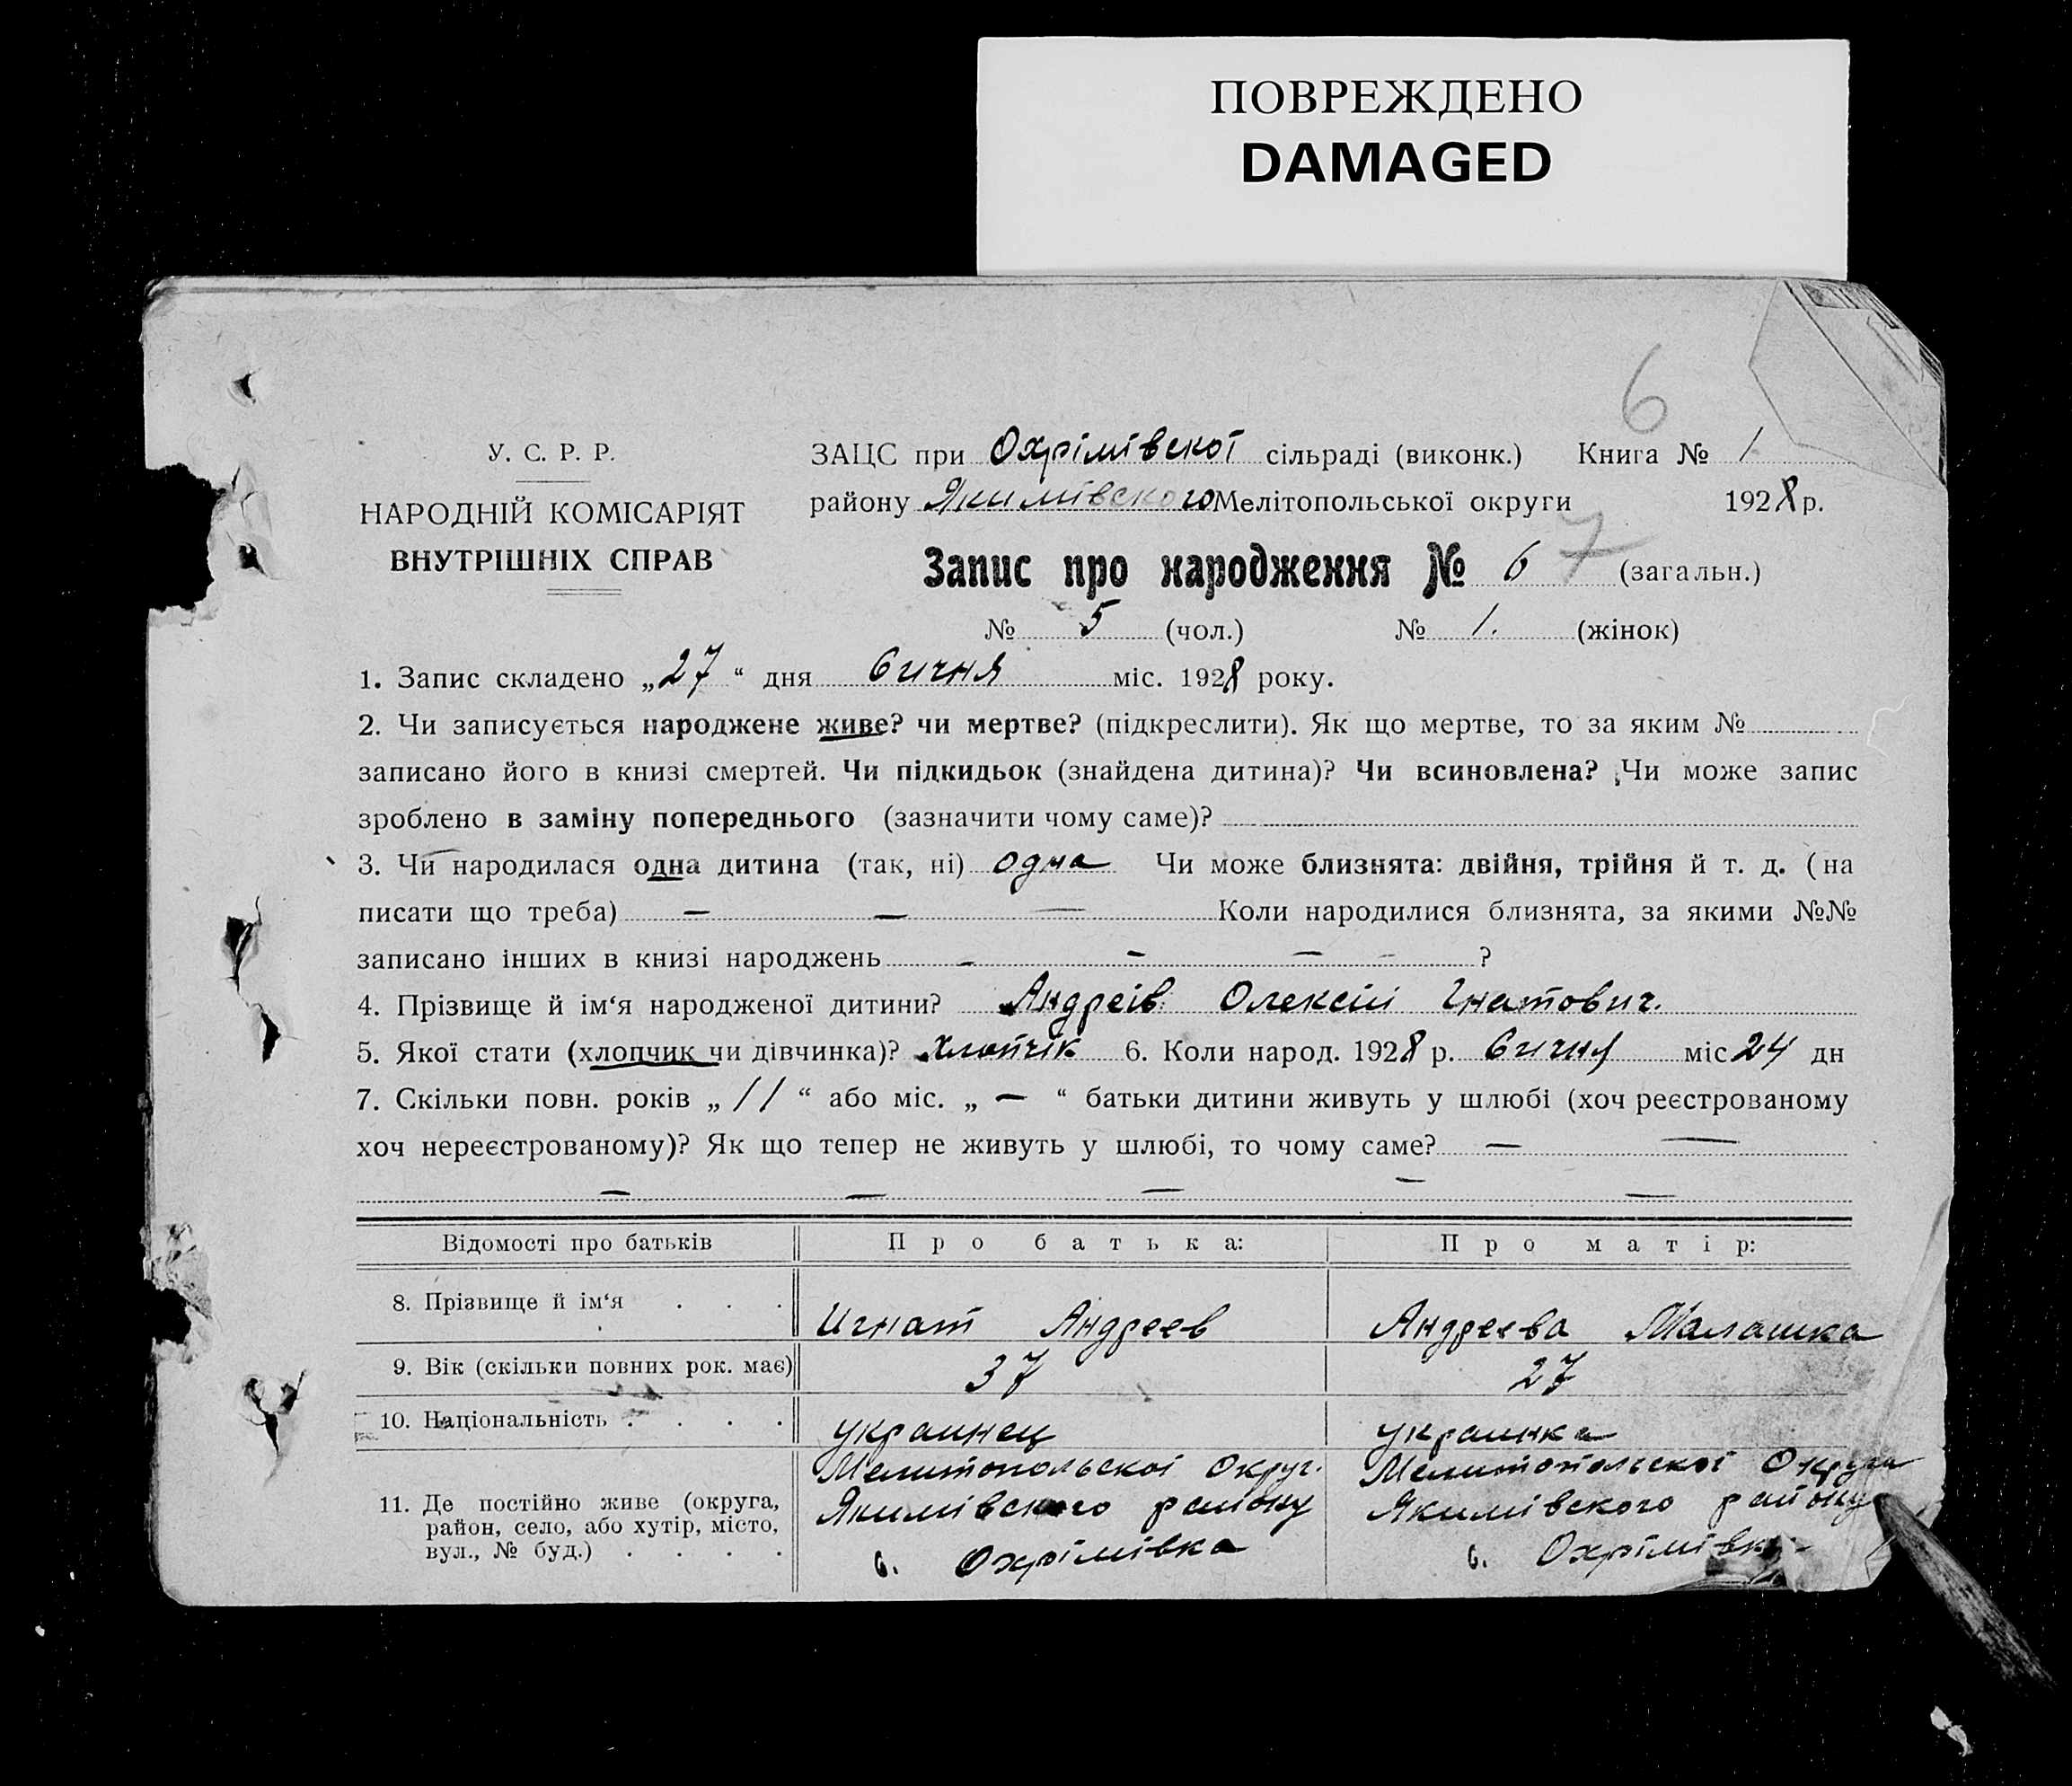 ПОВРЕЖДЕНО
DAMAGED
6
У. С. Р. Р.
НАРОДНІЙ КОМІСАРІЯТ
ВНУТРІШНІХ СПРАВ
ЗАЦС при Охрімівскої сільраді (виконк.) Книга № 1
району Якимівского Мелітопольської округи 1928 р.
Запис про народження № 6 7 (загальн.)
№ 5 (чол.) № 1. (жінок)
1. Запис складено „27“ дня Січня міс. 1928 року.
2. Чи записується народжене живе? чи мертве? (підкреслити). Як що мертве, то за яким №
записано його в книзі смертей. Чи підкидьок (знайдена дитина)? Чи всиновлена? Чи може запис
зроблено в заміну попереднього (зазначити чому саме)?
3. Чи народилася одна дитина (так, ні) одна Чи може близнята: двійня, трійня й т. д. (на
писати що треба) — — — Коли народилися близнята, за якими №№
записано інших в книзі народжень - - - - ?
4. Прізвище й ім‘я народженої дитини? Андреів Олексій Гнатович.
5. Якої стати (хлопчик чи дівчинка)? Хлопчік 6. Коли народ. 1928 р. Січня міс 24 дн
7. Скільки повн. років „11“ або міс. „—“ батьки дитини живуть у шлюбі (хоч реєстрованому
хоч нереєстрованому)? Як що тепер не живуть у шлюбі, то чому саме? — —
— — — — —
Відомості про батьків Про батька: Про матір:
8. Прізвище й ім‘я . . . Игнат Андреев Андреева Малашка
9. Вік (скільки повних рок. має) 37 27
10. Національність . . . . украинец украинка
11. Де постійно живе (округа,
район, село, або хутір, місто,
вул., № буд.) . . . .
Мелитопольскої Округ.
Якимівского району
с. Охрімівка
Мелитопольскої Округи
Якимівского району
с. Охрімівка